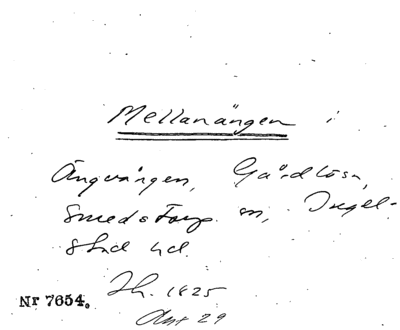 Mellanängen i
Ängvången, Gärdlösa,
Smedstorps sn, Ingel-
stad hd.
Lh. 1825
Akt 29
Nr 7654.